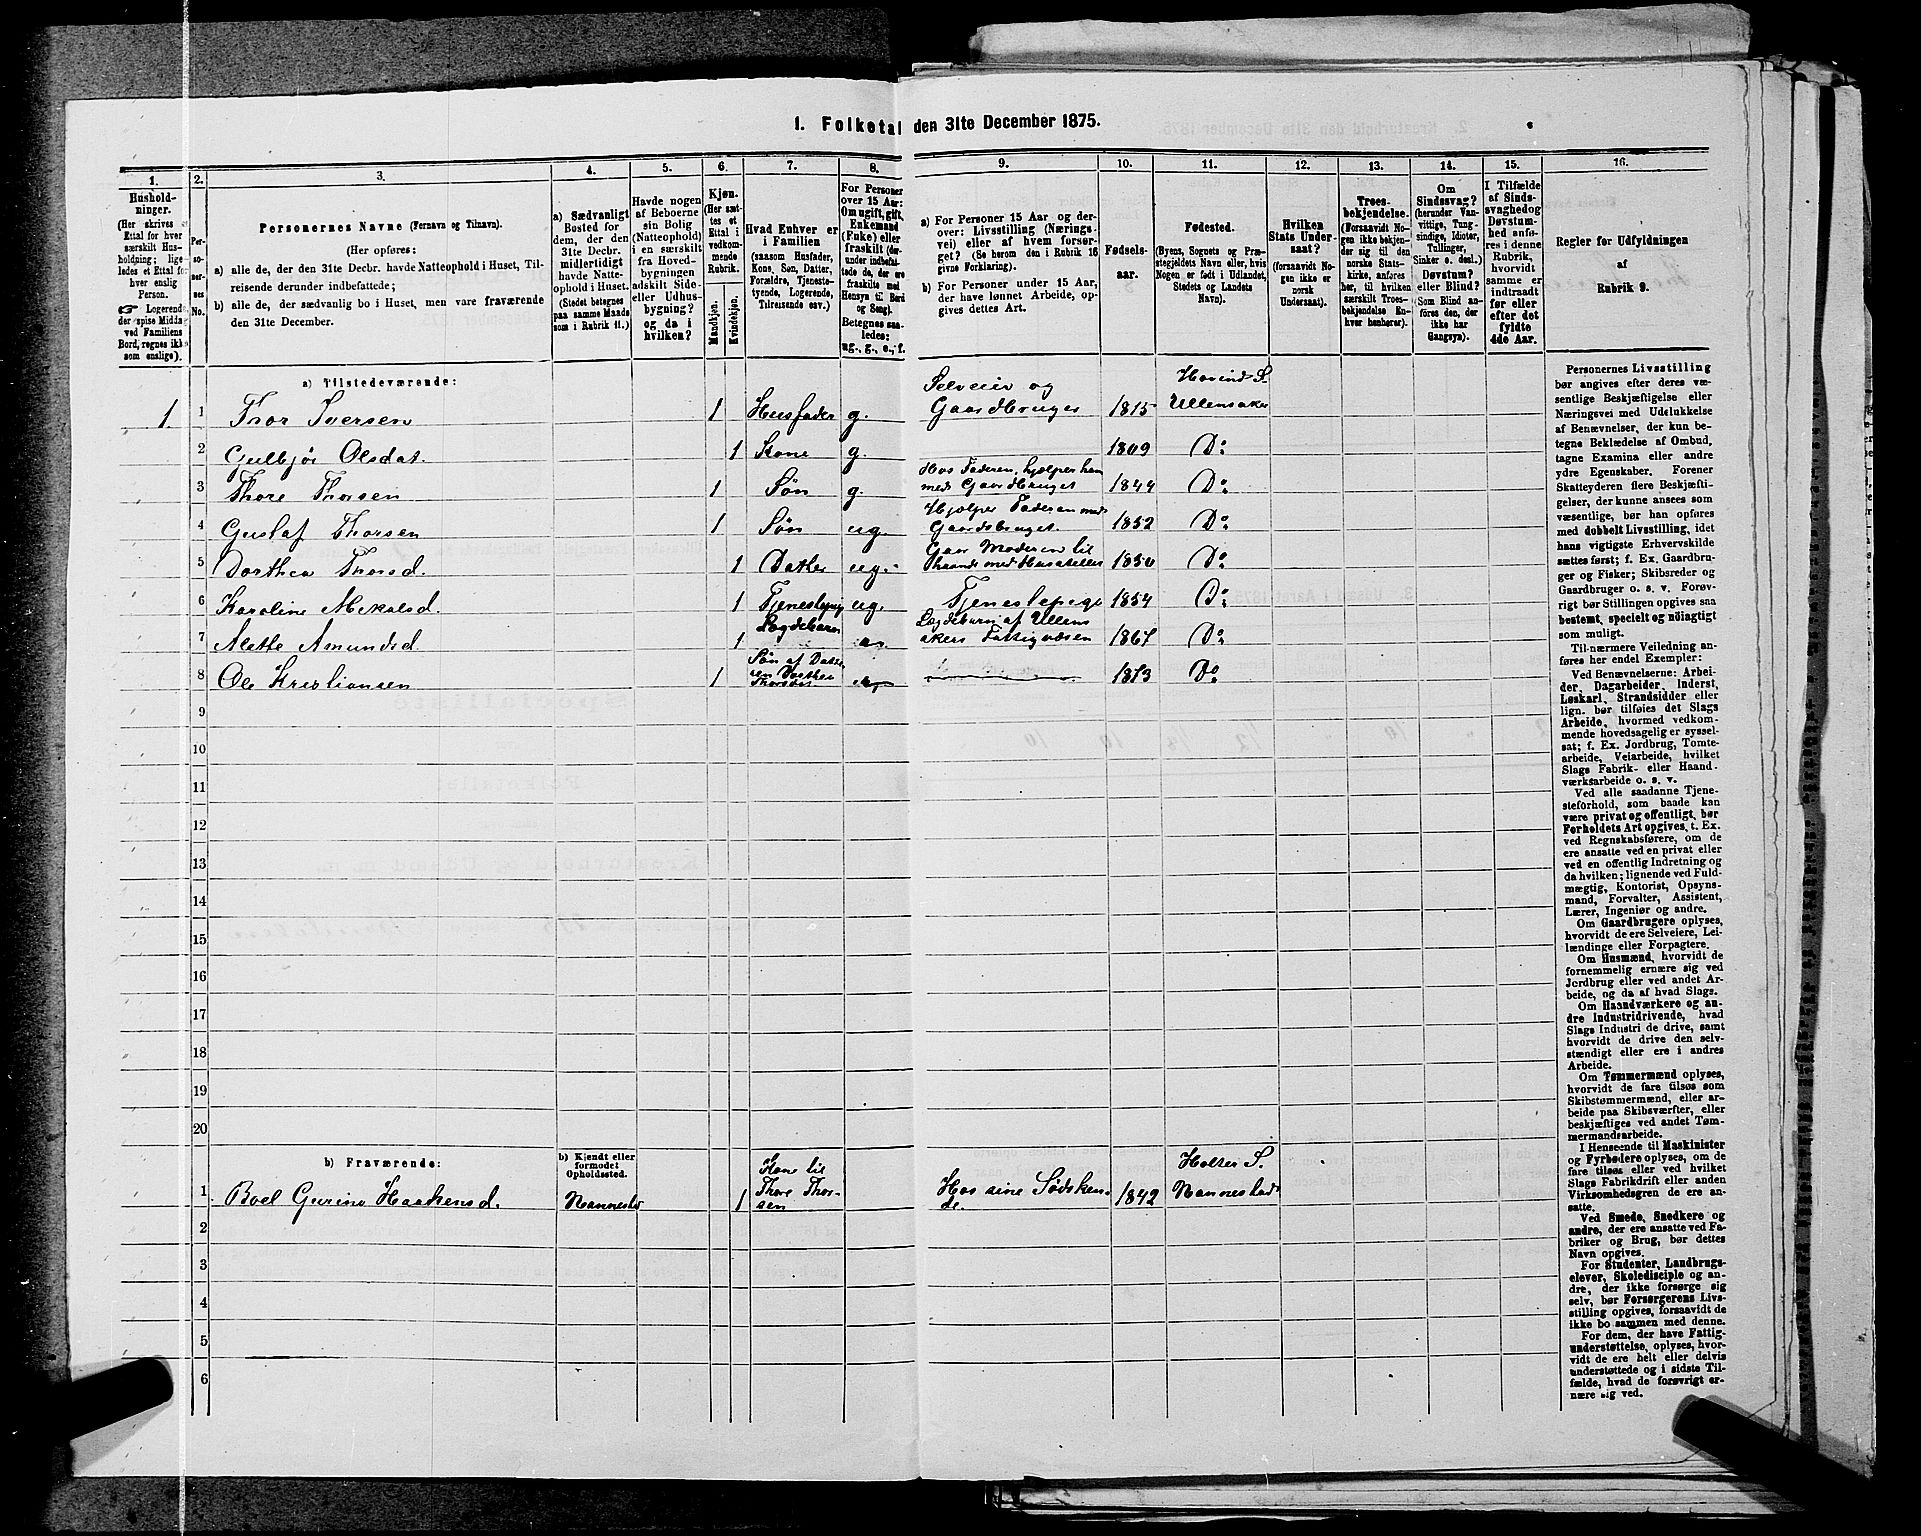 1. Folketal den 31te December 1875.
1.
2.
3.
4.
5.
6.
7.
8.
9.
10.
11.
12.
13.
14.
15.
16.
Hushold-
ninger.
(Her skrives et
Ettal for hver
særskilt Hus-
holdning; lige-
ledes et Ettal for
hver enslig
Person.
☞ Logerende,
der spise Middag
ved Familiens
Bord, regnes ikke
som enslige).
Per-
so-
ner-
nes
No.
Personernes Navne (Fornavn og Tilnavn).
(Her opføres:
a) alle de, der den 31te Decbr. havde Natteophold i Huset, Til-
reisende derunder indbefattede;
b) alle de, der sædvanlig bo i Huset, men vare fraværende
den 31te December.
a) Sædvanligt
Bosted for
dem, der den
31te Decbr.
midlertidigt
havde Natte-
ophold i Huset.
(Stedet betegnes
paa samme Maade
som i Rubrik 11.)
Havde nogen
af Beboerne
sin Bolig
(Natteophold)
i en særskilt
fra Hoved-
bygningen
adskilt Side-
eller Udhus-
bygning?
og da i
hvilken?
Kjøn.
(Her sæt-
tes et
Ettal i
vedkom-
mende
Rubrik.
Mandkjøn.
Kvindekjøn.
Hvad Enhver er
i Familien
(saasom Husfader,
Kone, Søn, Datter,
Forældre, Tjeneste-
tyende, Logerende,
Tilreisende osv.)
For Personer
over 15 Aar:
Om ugift, gift,
Enkemand
(Enke) eller
fraskilt (der-
under indbefat-
tede de, der ere
fraskilte med
Hensyn til Bord
og Seng).
Betegnes saa-
ledes:
ug., g., e., f.
a) For Personer 15 Aar og der-
over: Livsstilling (Nærings-
vei) eller af hvem forsør-
get? (Se herom den i Rubrik 16
givne Forklaring).
b) For Personer under 15 Aar,
der have lønnet Arbeide, op-
gives dettes Art.
Fødsels-
aar.
Fødested.
(Byens, Sognets og Præ-
stegjeldets Navn eller, hvis
Nogen er født i Udlandet,
Stedets og Landets
Navn).
Hvilken
Stats Under-
saat?
(forsaavidt No-
gen ikke er
norsk
Undersaat).
Troes-
bekjendelse.
(Forsaavidt No-
gen ikke bekjen-
der sig til den
norske Stats-
kirke, anføres
her, til hvilken
særskilt Troes-
bekjendelse En-
hver henhører).
Om
Sindssvag?
(herunder Van-
vittige, Tung-
sindige, Idioter,
Tullinger,
Sinker o. desl.)
Døvstum?
eller Blind?
(Som Blind an-
føres den, der
ikke har
Gangsyn).
I Tilfælde
af Sinds-
svaghed og
Døvstum-
hed anfø-
res i denne
Rubrik,
hvorvidt
samme er
indtraadt
før eller
efter det
fyldte
4de Aar.
Regler for Udfyldningen
af
Rubrik 9.
a) Tilstedeværende:
1 1 Thor Iversen 1 Husfader g. Selveier og Gaardbruger 1815 Hovind S. Ullensaker
2 Gulbjør Olsdat. 1 Kone g. 1809 Do
3 Thore Thorsen 1 Søn g. Hos Faderen, hjælper ham med Gaardbruget 1844 Do
4 Gustaf Thorsen 1 Søn ug. Hjælper Faderen med Gaardsbruget. 1852 Do
5 Dorthea Thorsd. 1 Datter ug. Gaar Moderen til haande med Husstellet 1850 Do
6 Karoline Mekalsd. 1 Tjenestepig ug. Tjenestepige 1854 Do
7 Alette Amundsd. 1 Lægdebarn Lægdebarn af Ullensakers Fattigvæsen 1867 Do
8 Ole Kristiansen 1 Søn af Datteren Dorthea Thorsdat 1873 Do
9
10
11
12
13
14
15
16
17
18
19
20
b) Fraværende:
b) Kjendt eller
formodet
Opholdssted.
1 Boel Gurine Haakensd. Nannestad 1 Kone til Thore Thorsen Hos sine Sødskende. 1842 Holter S. Nannestads
2
3
4
5
6
Personernes Livsstilling
bør angives efter deres væ-
sentlige Beskjæftigelse eller
Næringsvei med Udelukkelse
af Benævnelser, der kun be-
tegne Beklædelse af Ombud,
tagne Examina eller andre
ydre Egenskaber. Forener
Skatteyderen flere Beskjæfti-
gelser, der kunne ansees som
væsentlige, bør han opføres
med dobbelt Livsstilling, idet
hans vigtigste Erhvervskilde
sættes først; f. Ex. Gaardbru-
ger og Fisker; Skibsreder og
Gaardbruger o. s. v. Forøv-
rigt bør Stillingen opgives saa
bestemt, specielt og nöiagtigt
som muligt.
Til nærmere Veiledning an-
føres her endel Exempler:
Ved Benævnelserne: Arbei-
der, Dagarbeider, Inderst,
Løskarl, Strandsidder eller
lign. bør tilføies det Slags
Arbeide, hvormed vedkom-
mende hovedsagelig er syssel-
sat; f. Ex. Jordbrug, Tomte-
arbeide, Veiarbeide, hvilket
Slags Fabrik- eller Haand-
værksarbeide o. s. v.
Ved alle saadanne Tjene-
steforhold, som baade kan
være privat og offentligt, bør
Forholdets Art opgives, t. Ex.
ved Regnskabsførere, om de
ere ansatte ved en privat eller
ved en offentlig Indretning og
da hvilken; lignende ved Fuld-
mægtig, Kontorist, Opsyns-
mand, Forvalter, Assistent,
Lærer, Ingeniør og andre.
Om Gaardbrugere oplyses,
hvorvidt de ere Selveiere, Lei-
lændinge eller Forpagtere.
Om Husmænd, hvorvidt de
fornemmelig ernære sig ved
Jordbrug eller ved andet Ar-
beide, og da af hvad Slags.
Om Haandværkere og an-
dre Industridrivende, hvad
Slags Industri de drive, samt
hvorvidt de drive den selv-
stændigt eller ere i andres
Arbeide.
Om Tømmermænd oplyses,
hvorvidt de fare tilsøs som
Skibstømmermænd, eller ar-
beide paa Skibsværfter, eller
beskjæftiges ved andet Tøm-
mermandsarbeide.
I Henseende til Maskinister
og Fyrbødere oplyses, om de
fare tilsøs eller ved hvilket
Slags Fabrikdrift eller anden
Virksomhedsgren de ere an-
satte.
Ved Smede, Snedkere og
andre, der ere ansatte ved Fa-
briker og Brug, bør dettes
Navn opgives.
For Studenter, Landbrugs-
elever, Skoledisciple og an-
dre, der ikke forsørge sig
selv, bør Forsørgerens Livs-
stilling opgives, forsaavidt de
ikke bo sammen med denne.
For dem, der have Fattig-
understøttelse, oplyses, hvor-
vidt de ere helt eller delvis
understøttede og i sidste Til-
fælde, hvad de forøvrigt er-
nære sig ved.